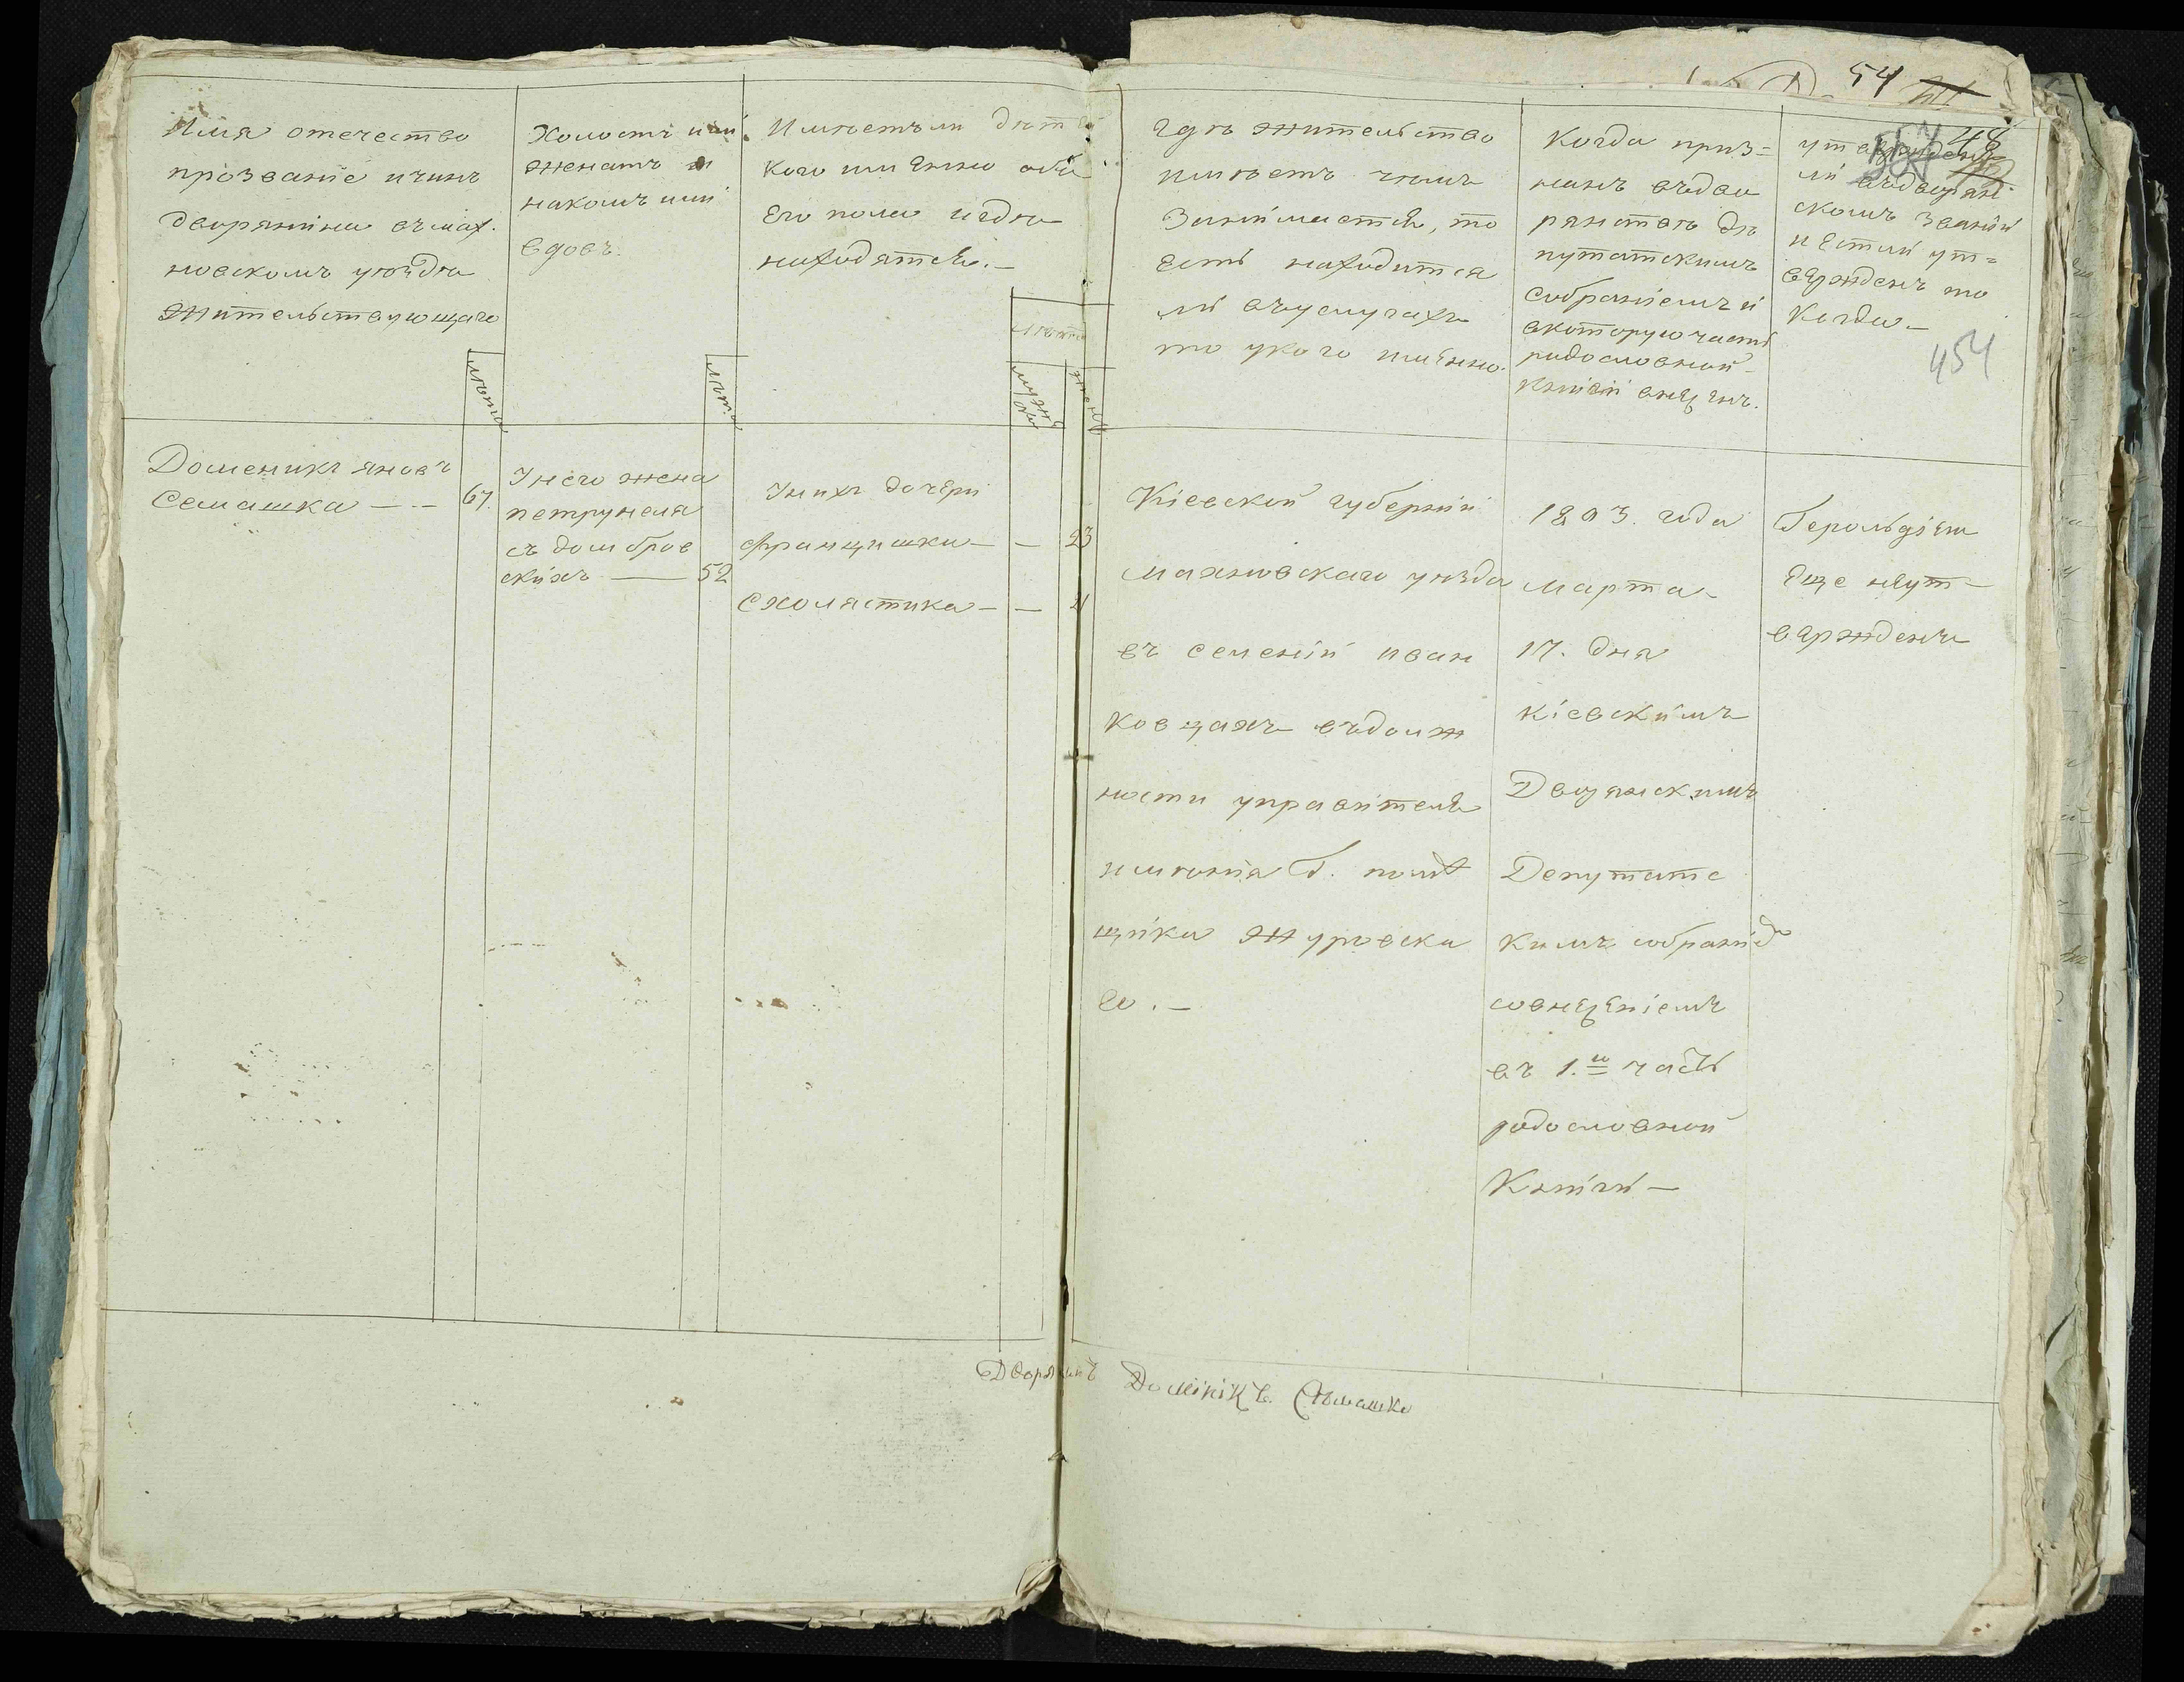 54
48
454
Имя отечество
прозваніе ичинъ
дворянина вмах.
новскомъ уѣздѣ
жительствующаго
лѣта
Холостъ или
женатъ и
накомъ или
вдовъ.
лѣта
Имѣетъ ли дѣтей
кого имѣнно обое
его пола игдѣ
находятся. —
лѣта
мужеска
женс
гдѣ жительство
имѣетъ чемъ
Занимается, то
есть находится
ли вуслугахъ
то укого имѣнно.
Когда приз=
нанъ вдво
рянствѣ де
путатскимъ
собраніемъ и
вкоторую часть
родословной
книги внесенъ.
утвержденъ
ли вдворян
скомъ званіи
и естли ут=
вержденъ то
когда —
Доменикъ яновъ
Семашка — — 67.
Унего жена
петрунеля
съ домбров
скихъ — 52
Унихъ дочери
Францишка — — 23
Схоластика — —
Кіевской губерніи
махновскаго уѣзда
въ селеніи иван
ковцахъ вдолж
ности управителя
имѣнія Г. помѣ
щика Журовска
го. —
1803. года
марта
17. дня
кіевскимъ
Дворянскимъ
Депутатс
кимъ собраніе
совнесеніемъ
въ 1.ю часть
родословной
Книги —
Герольдіею
еще неут
вержденъ
Дворянинъ Домінікъ Сѣмашко